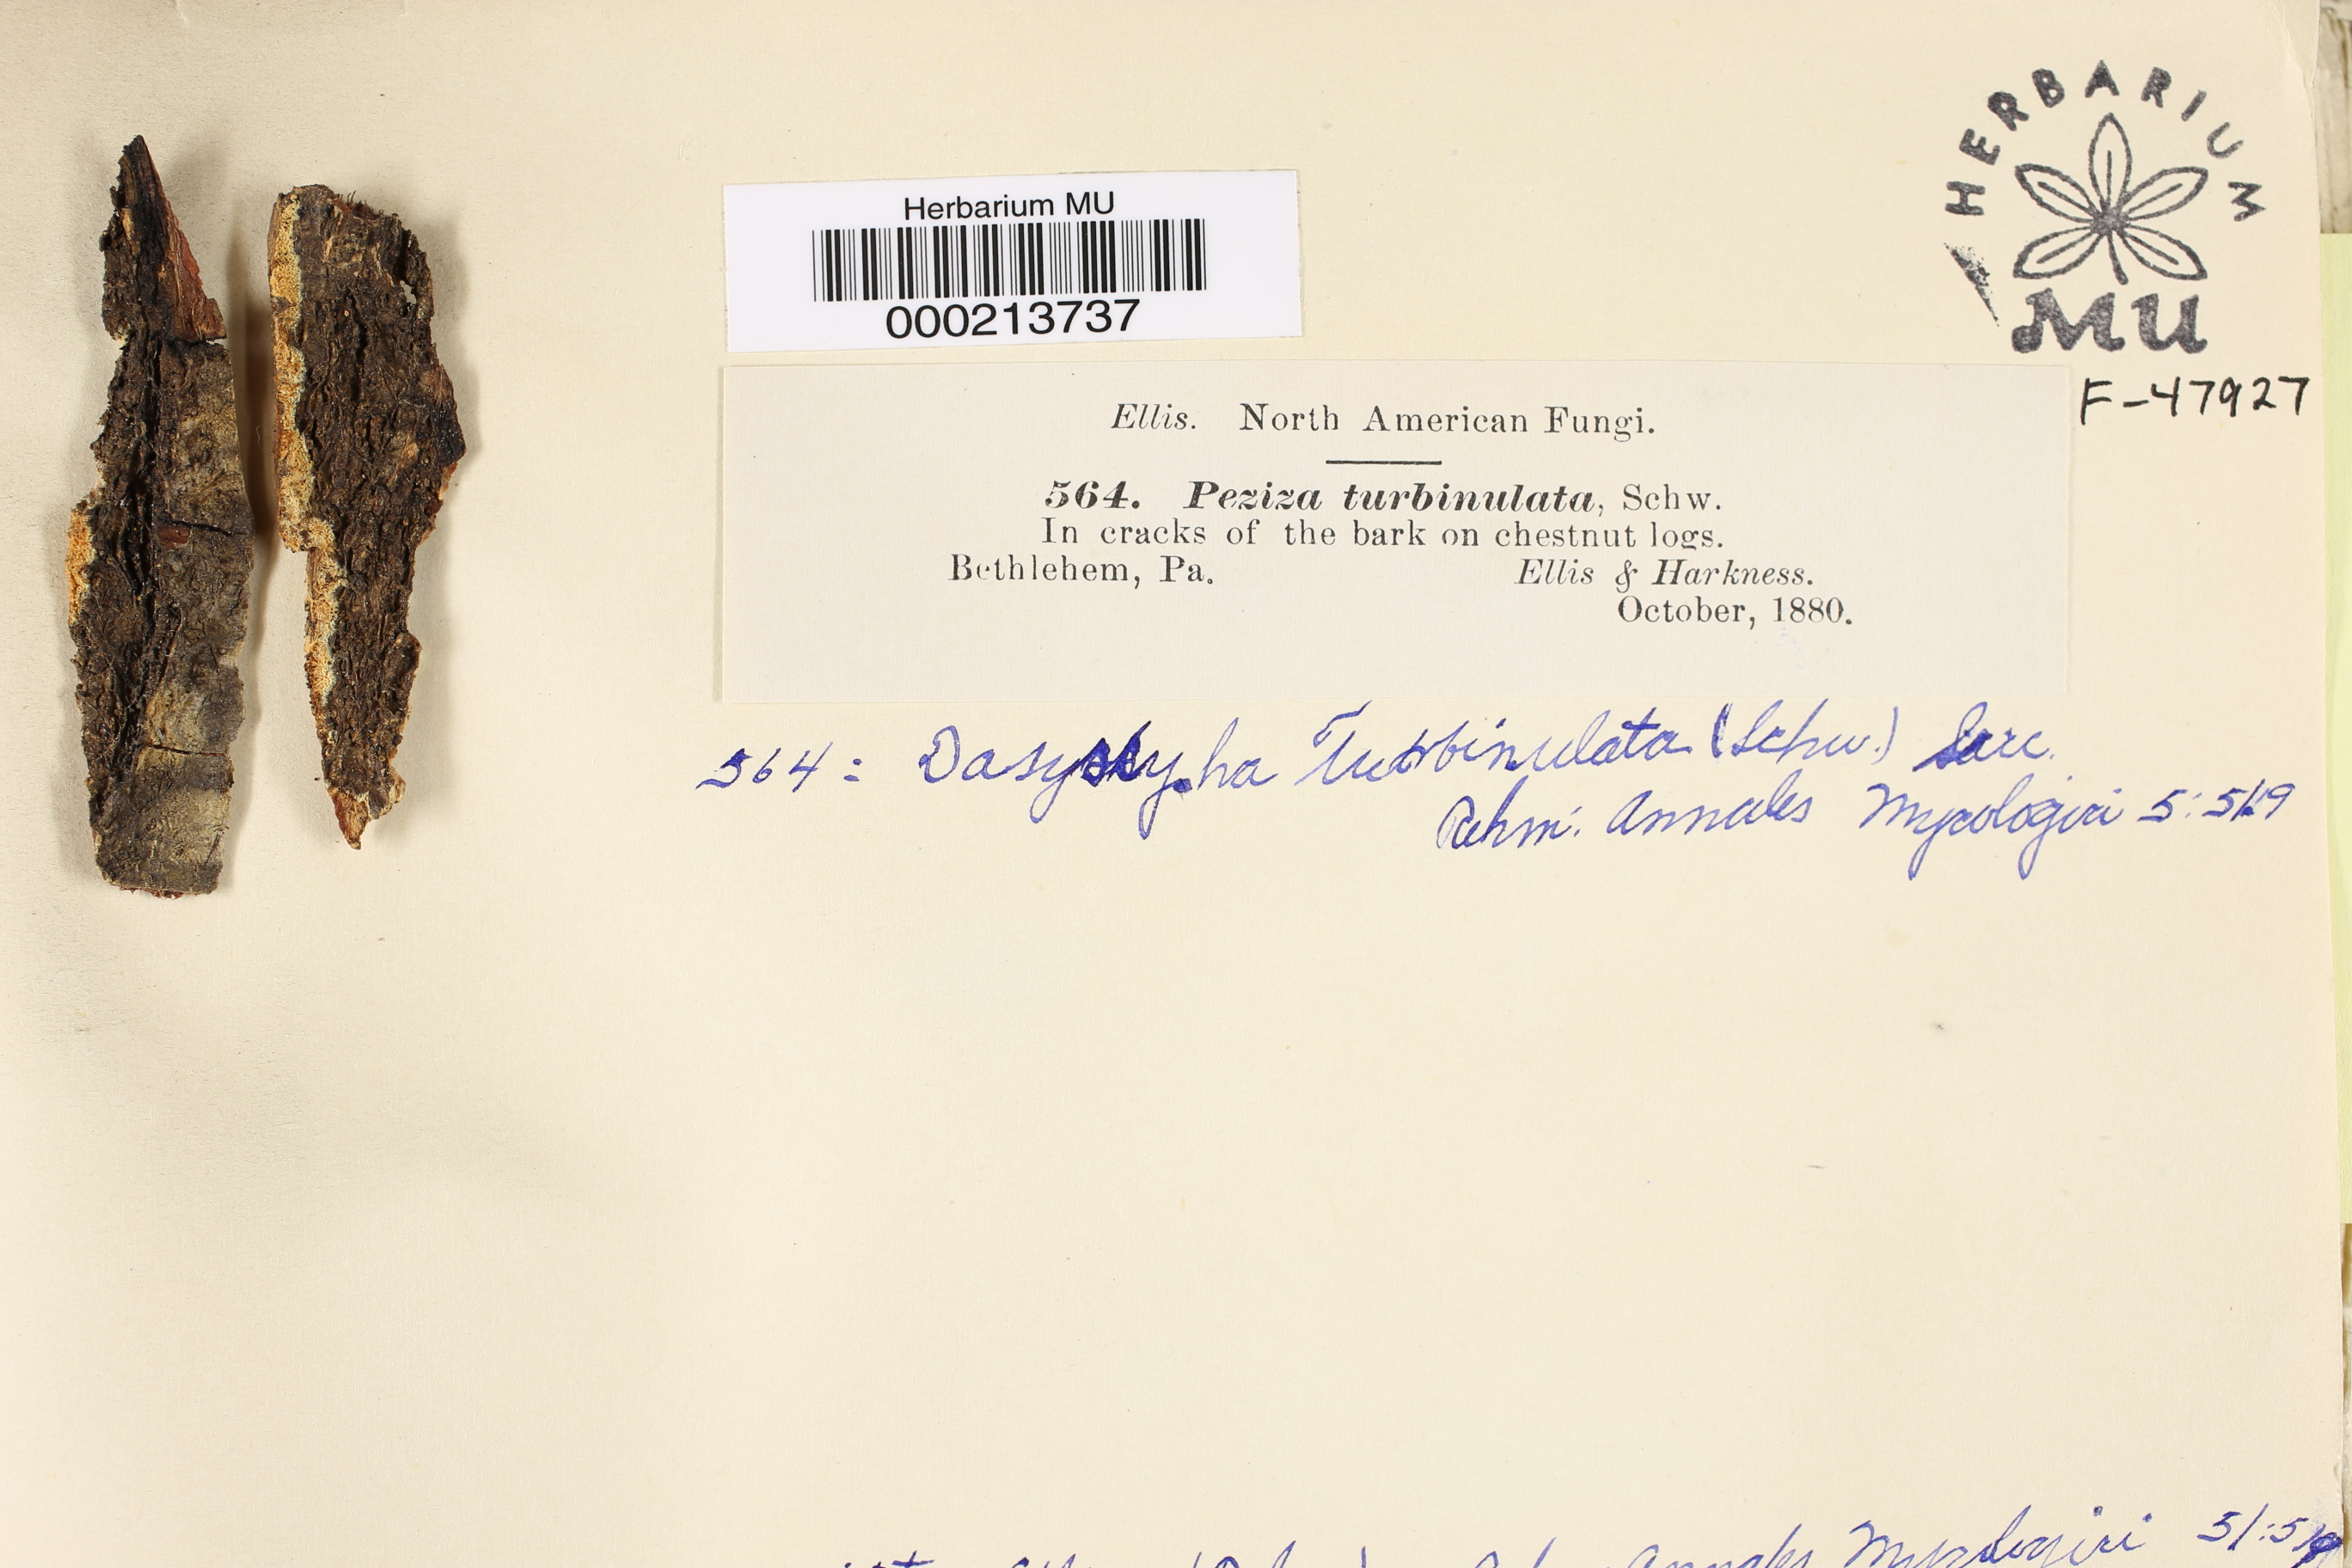 HERBARIUM
MU
F-47927
Herbarium MU
000213737
Ellis. North American Fungi.
564. Peziza turbinulata, Schw.
In cracks of the bark on chestnut logs.
Bethlehem, Pa. Ellis & Harkness.
October, 1880.
564 = Dasyscypha Turbinulata (Schw.) Sacc.
Rehm. Annales Mycologici 5:
Annales Mycologici